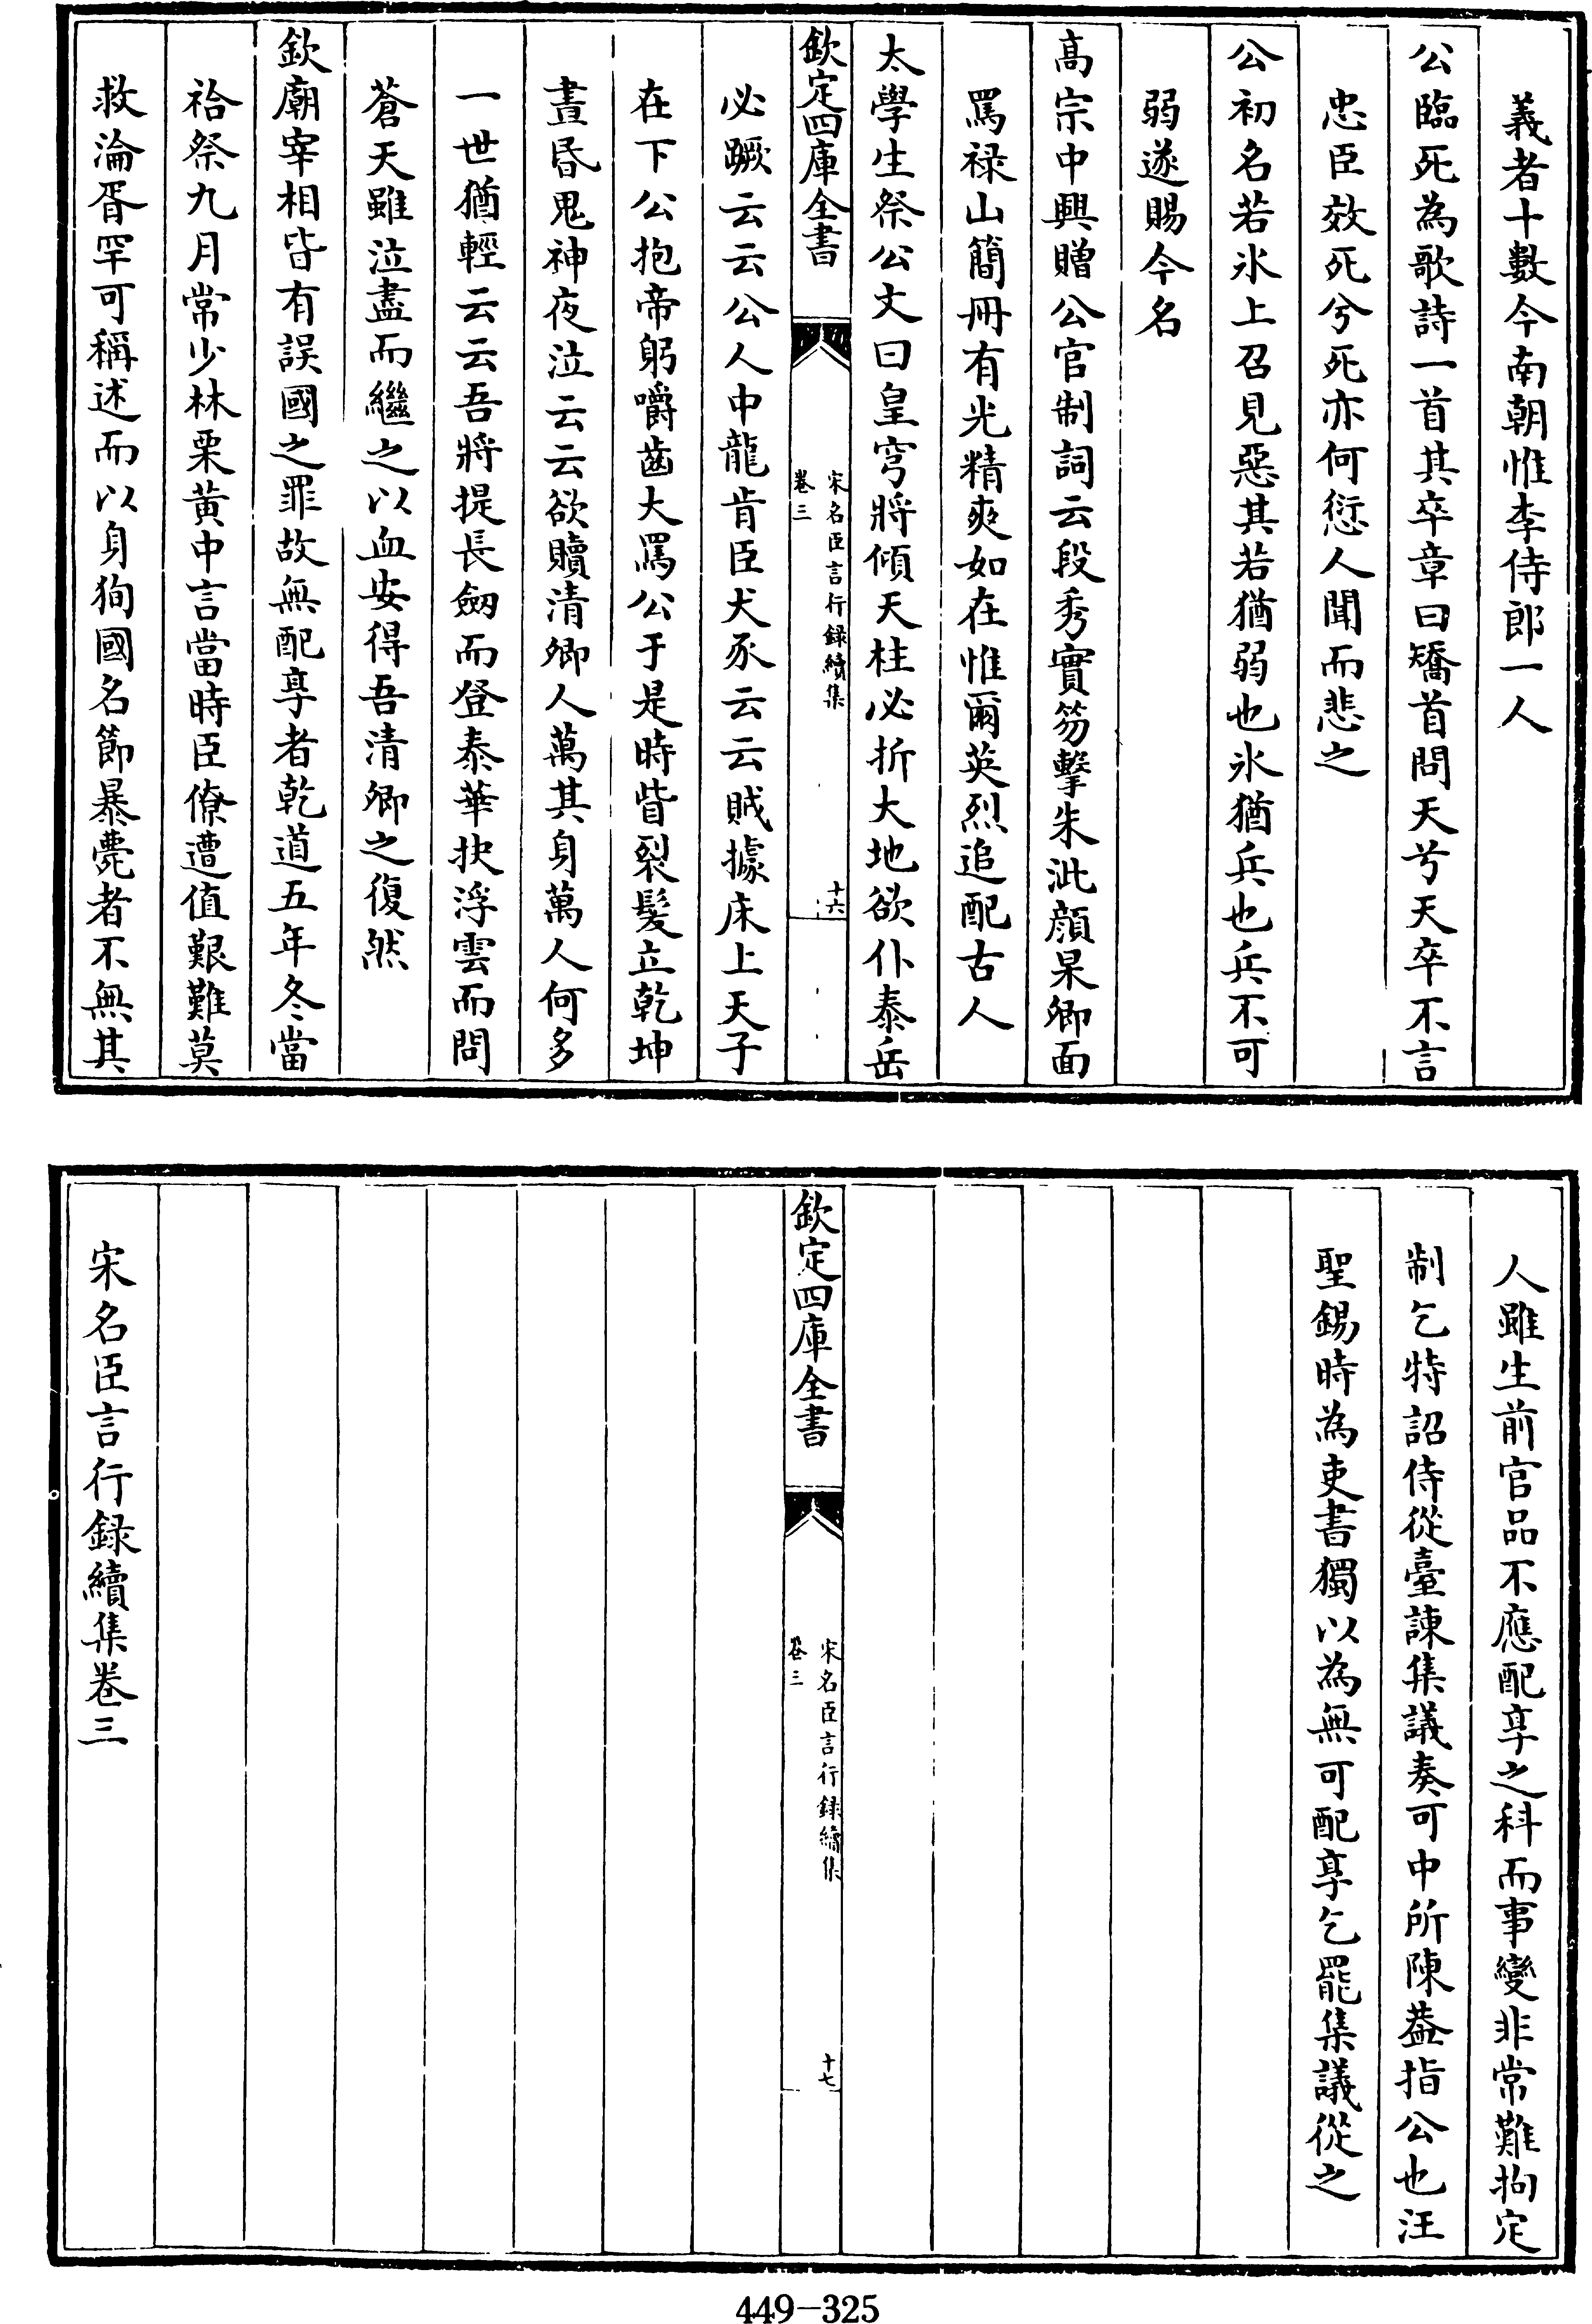 義者十數今南朝惟李侍郎一人
公臨死為歌詩一首其卒章曰矯首問天兮天卒不言
忠臣效死兮死亦何愆人聞而悲之
公初名若氷上召見惡其若猶弱也氷猶兵也兵不可
弱遂賜今名
高宗中興贈公官制詞云段秀實笏擊朱泚顔杲卿面
罵禄山簡冊有光精爽如在惟爾英烈追配古人
太學生祭公文曰皇穹將傾天柱必折大地欲仆泰岳
欽定四庫全書
宋名臣言行録續集
卷三
十六
必蹶云云公人中龍肯臣犬豕云云賊據床上天子
在下公抱帝躬嚼齒大罵公于是時眥裂髮立乾坤
晝昏鬼神夜泣云云欲贖清卿人萬其身萬人何多
一世猶輕云云吾將提長劒而登泰華抉浮雲而問
蒼天雖泣盡而繼之以血安得吾清卿之復然
欽廟宰相皆有誤國之罪故無配享者乾道五年冬當
祫祭九月常少林栗黄中言當時臣僚遭值艱難莫
救淪胥罕可稱述而以身狥國名節暴㒱者不無其
人雖生前官品不應配享之科而事變非常難拘定
制乞特詔侍從臺諫集議奏可中所陳葢指公也汪
聖錫時為吏書獨以為無可配享乞罷集議從之
欽定四庫全書
宋名臣言行録續集
卷三
十七
宋名臣言行録續集卷三
449-325